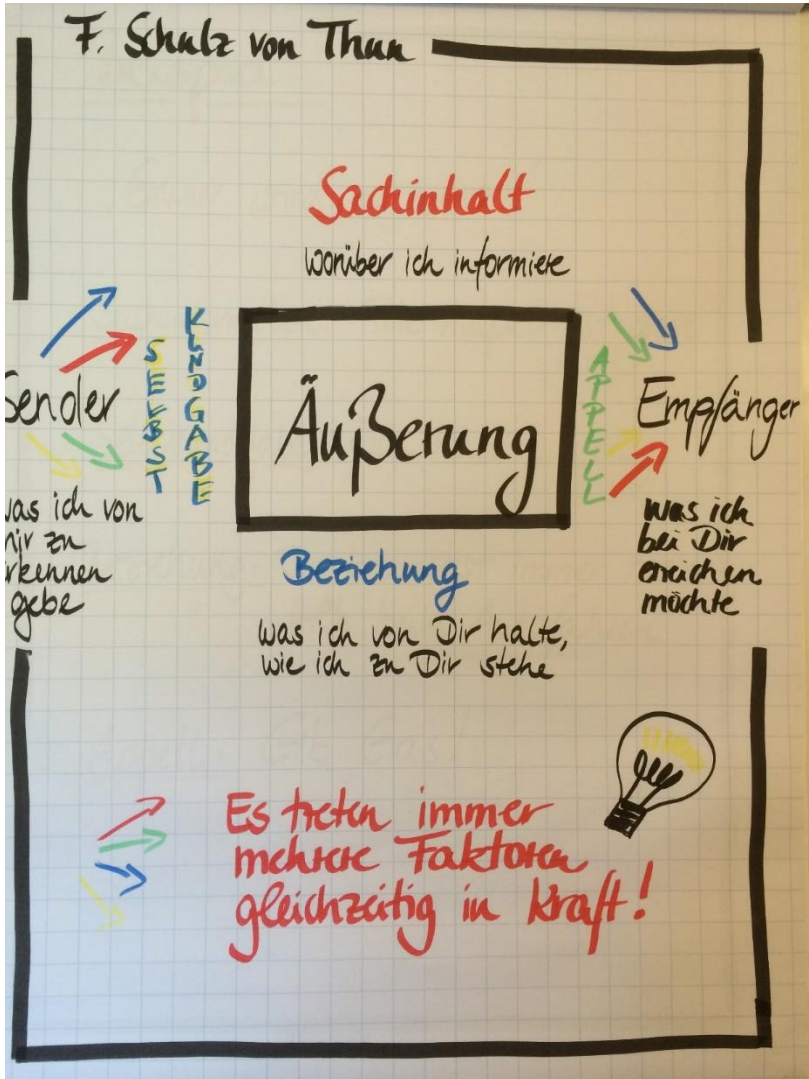 F. Schulz von Thun
Sachinhalt
worüber ich informiere
Sender
SELBST
KUNDGABE
Äußerung
APPELL
Empfänger
was ich von
mir zu
erkennen
gebe
was ich
bei Dir
erreichen
möchte
Beziehung
was ich von Dir halte,
wie ich zu Dir stehe
Es treten immer
mehrere Faktoren
gleichzeitig in Kraft!